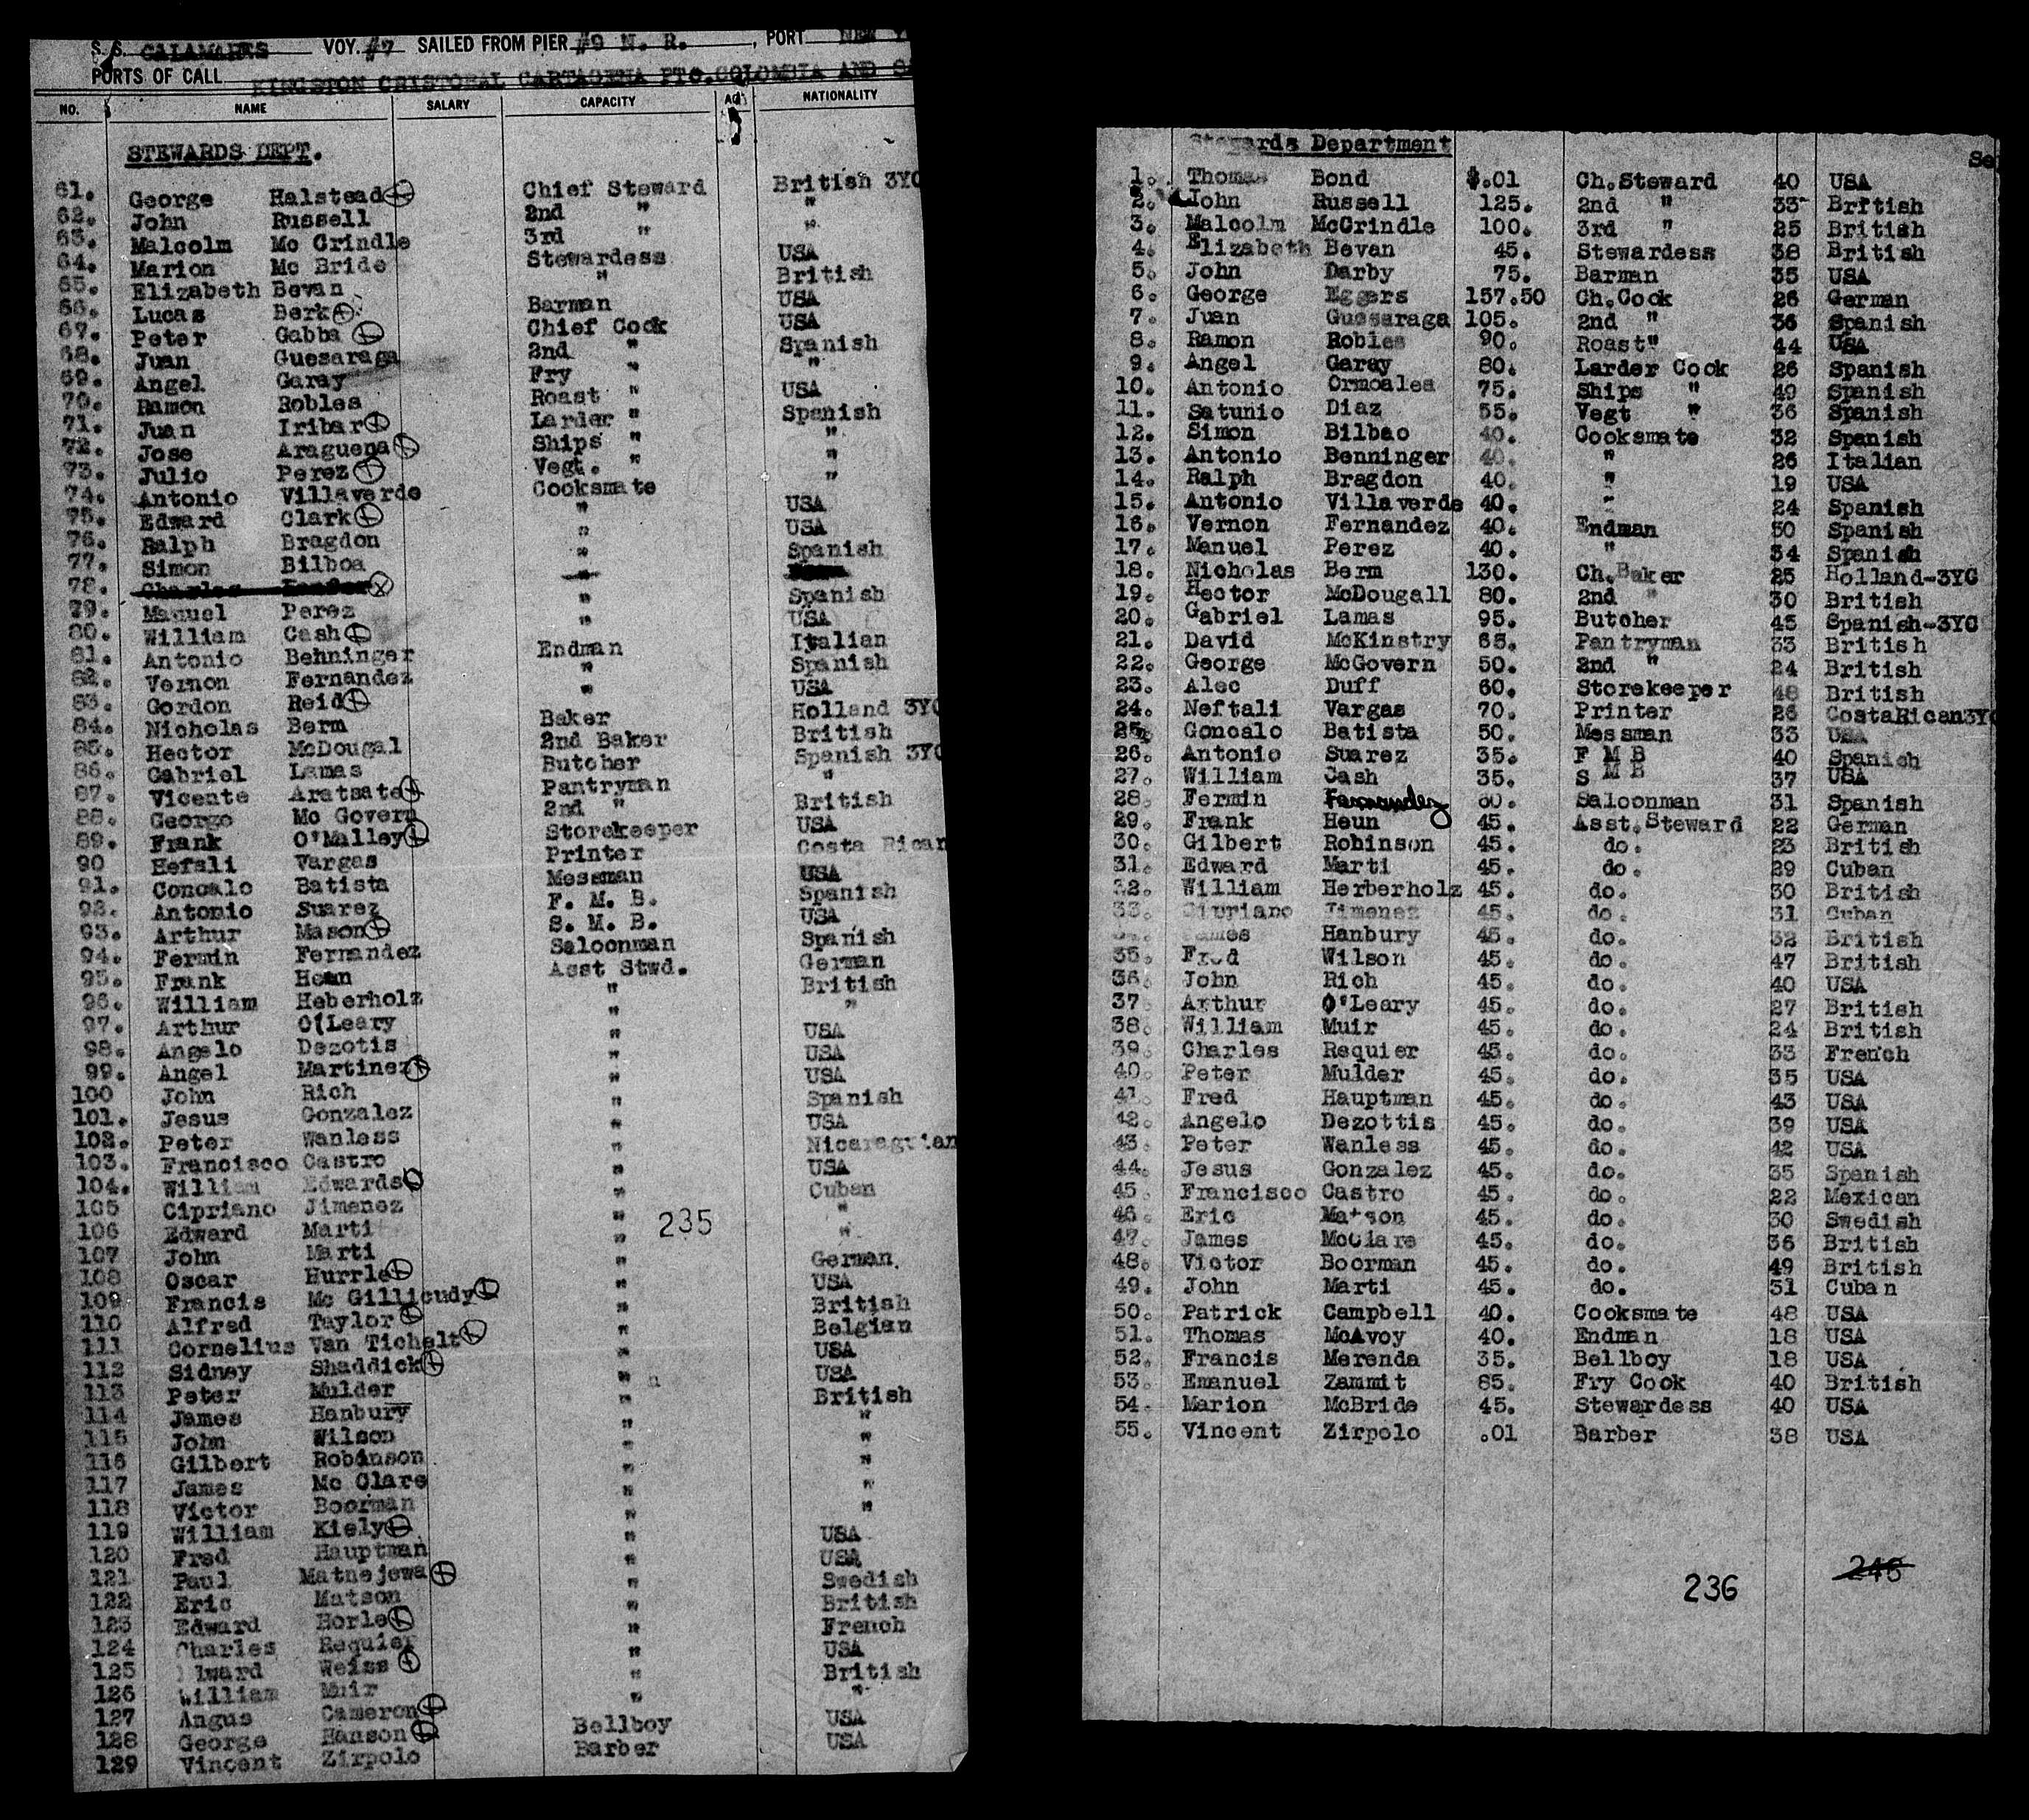 S. S. CALAMARES VOY. #7 SAILED FROM PIER #9 N. R. , PORT NEW Y
PORTS OF CALL KINGSTON CRISTOBAL CARTAGENA PTO.COLOMBIA AND S
NO. NAME SALARY CAPACITY AGE NATIONALITY
STEWARDS DEPT.
61. George Halstead Chief Steward British 3YC
62. John Russell 2nd " "
63. Malcolm Mc Grindle 3rd " "
64. Marion Mc Bride Stewardess USA
65. Elizabeth Bevan " British
66. Lucas Berk Barman USA
67. Peter Gabba Chief Cook USA
68. Juan Guesaraga 2nd " Spanish
69. Angel Garay Fry " "
70. Ramon Robles Roast " USA
71. Juan Iribar Larder " Spanish
72. Jose Araguena Ships " "
73. Julio Perez Vegt. " "
74. Antonio Villaverde Cooksmate "
75. Edward Clark " USA
76. Ralph Bragdon " USA
77. Simon Bilboa " Spanish
78. Charles "
79. Manuel Perez " Spanish
80. William Cash " USA
81. Antonio Behninger Endman Italian
82. Vernon Fernandez " Spanish
83. Gordon Reid " USA
84. Nicholas Berm Baker Holland 3YC
85. Hector McDougal 2nd Baker British
86. Gabriel Lamas Butcher Spanish 3YC
87. Vicente Aratsate Pantryman "
88. George Mc Govern 2nd " British
89. Frank O'Malley Storekeeper USA
90 Hefsli Vargas Printer Costa Rican
91. Concalo Batista Messman USA
92. Antonio Suarez F. M. B. Spanish
93. Arthur Mason S. M. B. USA
94. Fermin Fernandez Saloonman Spanish
95. Frank Heun Asst Stwd. German
96. William Heberholz " British
97. Arthur O'Leary " "
98. Angelo Dezotis " USA
99. Angel Martinez " USA
100 John Rich " USA
101. Jesus Gonzalez " Spanish
102. Peter Wanless " USA
103. Francisco Castro " Nicaraguian
104. William Edwards " USA
105 Cipriano Jimenez " Cuban
106 Edward Marti " "
107 John Marti " "
108 Oscar Hurrle " German
109 Francis Mc Gillicudy " USA
110 Alfred Taylor " British
111 Cornelius Van Tichelt " Belgian
112 Sidney Shaddick " USA
113 Peter Mulder " USA
114 James Hanbury " British
115 John Wilson " "
116 Gilbert Robinson " "
117 James Mc Clare " "
118 Victor Boorman " "
119 William Kiely " "
120 Fred Hauptman " USA
121 Paul Matnejewa " USA
122 Eric Matson " Swedish
123 Edward Horle " British
124 Charles Requier " French
125 dward Weiss " USA
126 William Muir " British
127 Angus Cameron " "
128 George Hanson Bellboy USA
129 Vincent Zirpolo Barber USA
235
Stewards Department
Se
1. Thomas Bond $.01 Ch.Steward 40 USA
2. John Russell 125. 2nd " 33 British
3. Malcolm McGrindle 100. 3rd " 25 British
4. Elizabeth Bevan 45. Stewardess 38 British
5. John Darby 75. Barman 35 USA
6. George Eggers 157.50 Ch.Cock 26 German
7. Juan Guesaraga 105. 2nd " 36 Spanish
8. Ramon Robles 90. Roast" 44 USA
9. Angel Garay 80. Larder Cock 26 Spanish
10. Antonio Ormoales 75. Ships " 49 Spanish
11. Satunio Diaz 55. Vegt " 36 Spanish
12. Simon Bilbao 40. Cooksmate 32 Spanish
13. Antonio Benninger 40. " 26 Italian
14. Ralph Bragdon 40. " 19 USA
15. Antonio Villaverde 40. " 24 Spanish
16. Vernon Fernandez 40. Endman 50 Spanish
17. Manuel Perez 40. " 34 Spanish
18. Nicholas Berm 130. Ch.Baker 25 Holland-3YC
19. Hector McDougall 80. 2nd " 30 British
20. Gabriel Lamas 95. Butcher 45 Spanish-3YC
21. David McKinstry 65. Pantryman 33 British
22. George McGovern 50. 2nd " 24 British
23. Alec Duff 60. Storekeeper 48 British
24. Neftali Vargas 70. Printer 26 CostaRican3YC
25. Goncalo Batista 50. Messman 33 USA
26. Antonio Suarez 35. F M B 40 Spanish
27. William Cash 35. S M B 37 USA
28. Fermin Fernandez 60. Saloonman 31 Spanish
29. Frank Heun 45. Asst.Steward 22 German
30. Gilbert Robinson 45. do. 23 British
31. Edward Marti 45. do. 29 Cuban
32. William Herberholz 45. do. 30 British
33. Cipriano Jimenez 45. do. 31 Cuban
34. James Hanbury 45. do. 32 British
35. Fred Wilson 45. do. 47 British
36. John Rich 45. do. 40 USA
37 Arthur O'Leary 45. do. 27 British
38. William Muir 45. do. 24 British
39. Charles Requier 45. do. 33 French
40. Peter Mulder 45. do. 35 USA
41. Fred Hauptman 45. do. 43 USA
42. Angelo Dezottis 45. do. 39 USA
43. Peter Wanless 45. do. 42 USA
44. Jesus Gonzalez 45. do. 35 Spanish
45. Francisco Castro 45. do. 22 Mexican
46. Eric Matson 45. do. 30 Swedish
47. James McClare 45. do. 36 British
48. Victor Boorman 45. do. 49 British
49. John Marti 45. do. 31 Cuban
50. Patrick Campbell 40. Cooksmate 48 USA
51. Thomas McAvoy 40. Endman 18 USA
52. Francis Merenda 35. Bellboy 18 USA
53. Emanuel Zammit 85. Fry Cook 40 British
54. Marion McBride 45. Stewardess 40 USA
55. Vincent Zirpolo .01 Barber 38 USA
246
236